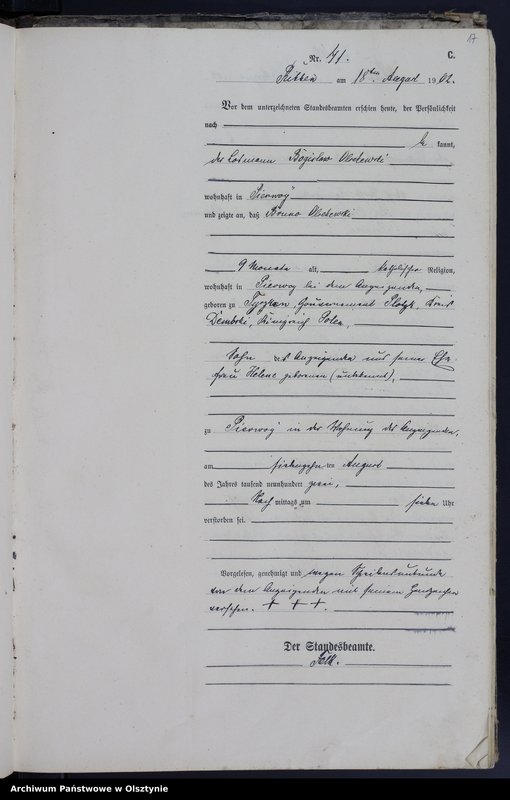 17
Nr. 41. C.
am 18ten August 1902.
Vor dem unterzeichneten Standesbeamten erschien heute, der Persönlichkeit
nach
kannt,
der Losmann Bogislaw
wohnhaft in Pierwoy
und zeigte an, daß Bruno
9 Monate alt, katholischer Religion,
wohnhaft in Pierwoy bei dem Anzeigenden,
geboren zu Gouvernement Plotzk, Kreis
Königreich Polen,
Sohn des Anzeigenden und seiner Ehe-
frau Helene geborenen (unbekannt),
zu Pierwoy in der Wohnung des Anzeigenden,
am siebenzehnten August
des Jahres tausend neunhundert zwei,
Nach mittags um sieben Uhr
verstorben sei.
Vorgelesen, genehmigt und wegen Schreibensunkunde
von dem Anzeigenden mit seinem Handzeichen
versehen. + + +.
Der Standesbeamte.
Archiwum Państwowe w Olsztynie